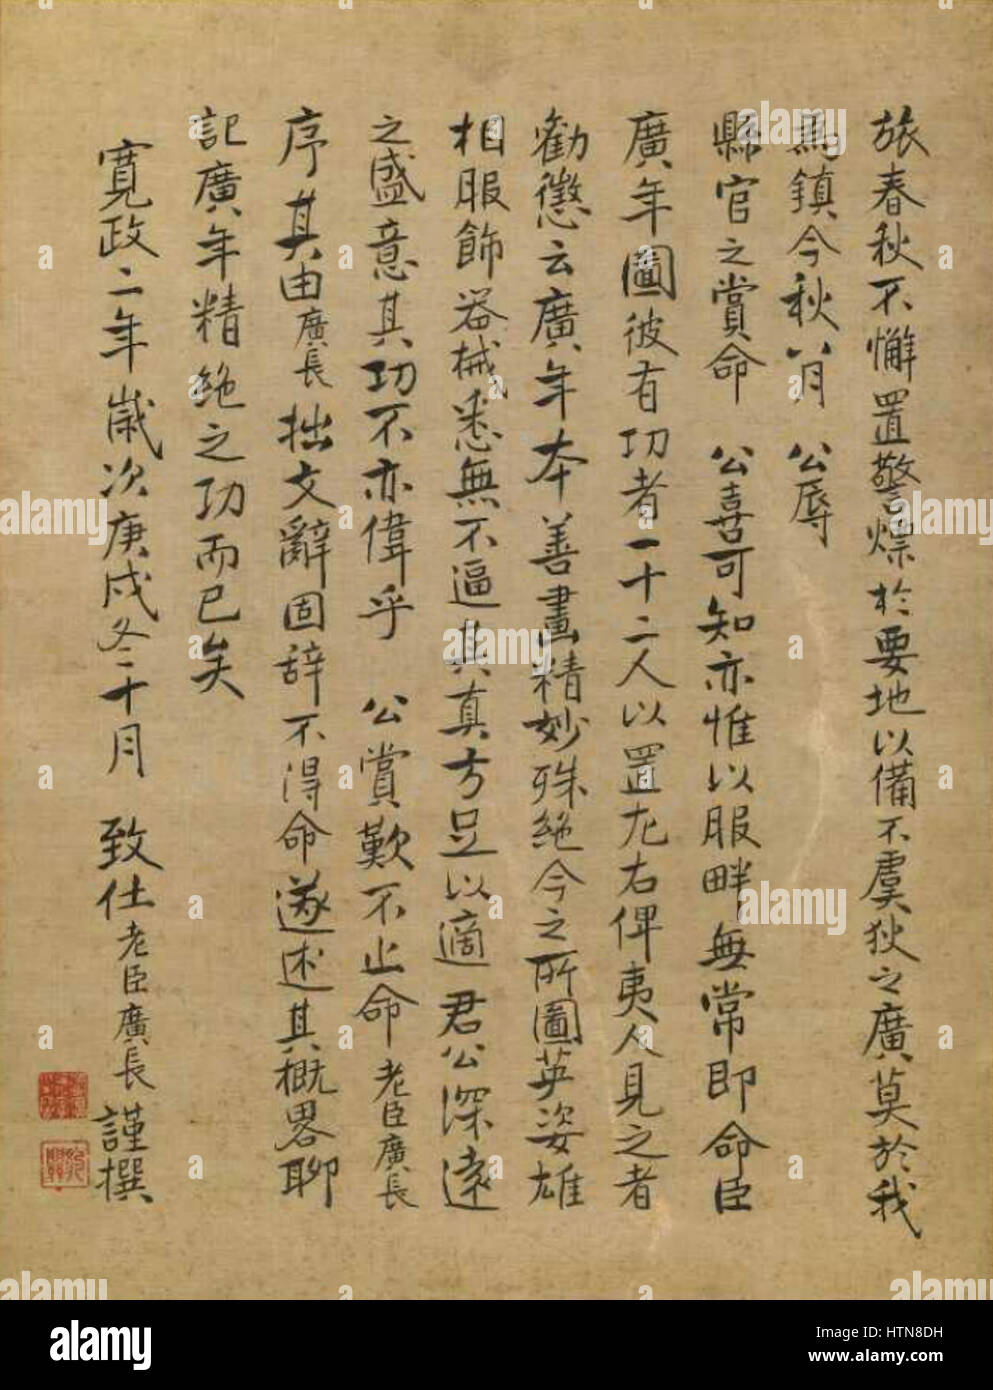 旅春秋不懈置警燎於要地以備不虞狄之廣莫於我
為鎮今秋八月　公辱
縣官之賞命　公喜可知亦惟以服畔無常即命臣
廣年圖彼有功者一十二人以置尤右俾夷人見之者
勸懲云廣年本善畫精妙殊絕今之所圖英姿雄
相服飾器械悉無不逼其真方足以適　君公深遠
之盛意其功不亦偉乎　公賞歎不止命老臣廣長
序其由廣長拙文辭固辞不得命遂述其概畧聊
記廣年精絶之功而已矣
寛政二年歲次庚戌冬十月　致仕老臣廣長謹撰
a alamy stock photo
HTN8DH
www.alamy.com